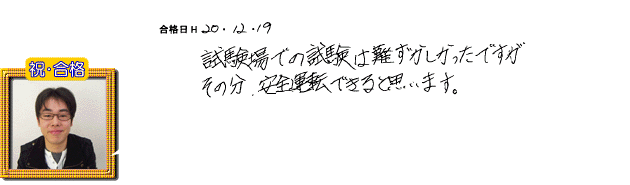 合格日H20・12・19
試験場での試験は難ずかしかったですが
その分、安全運転できると思います。
祝・合格